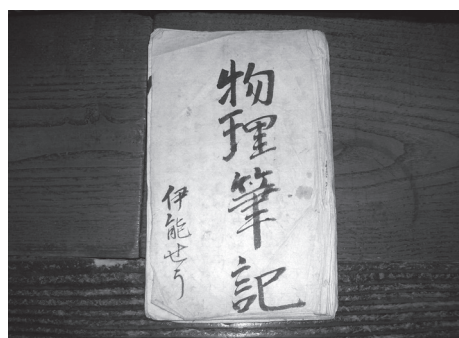 物理筆記
伊能せう